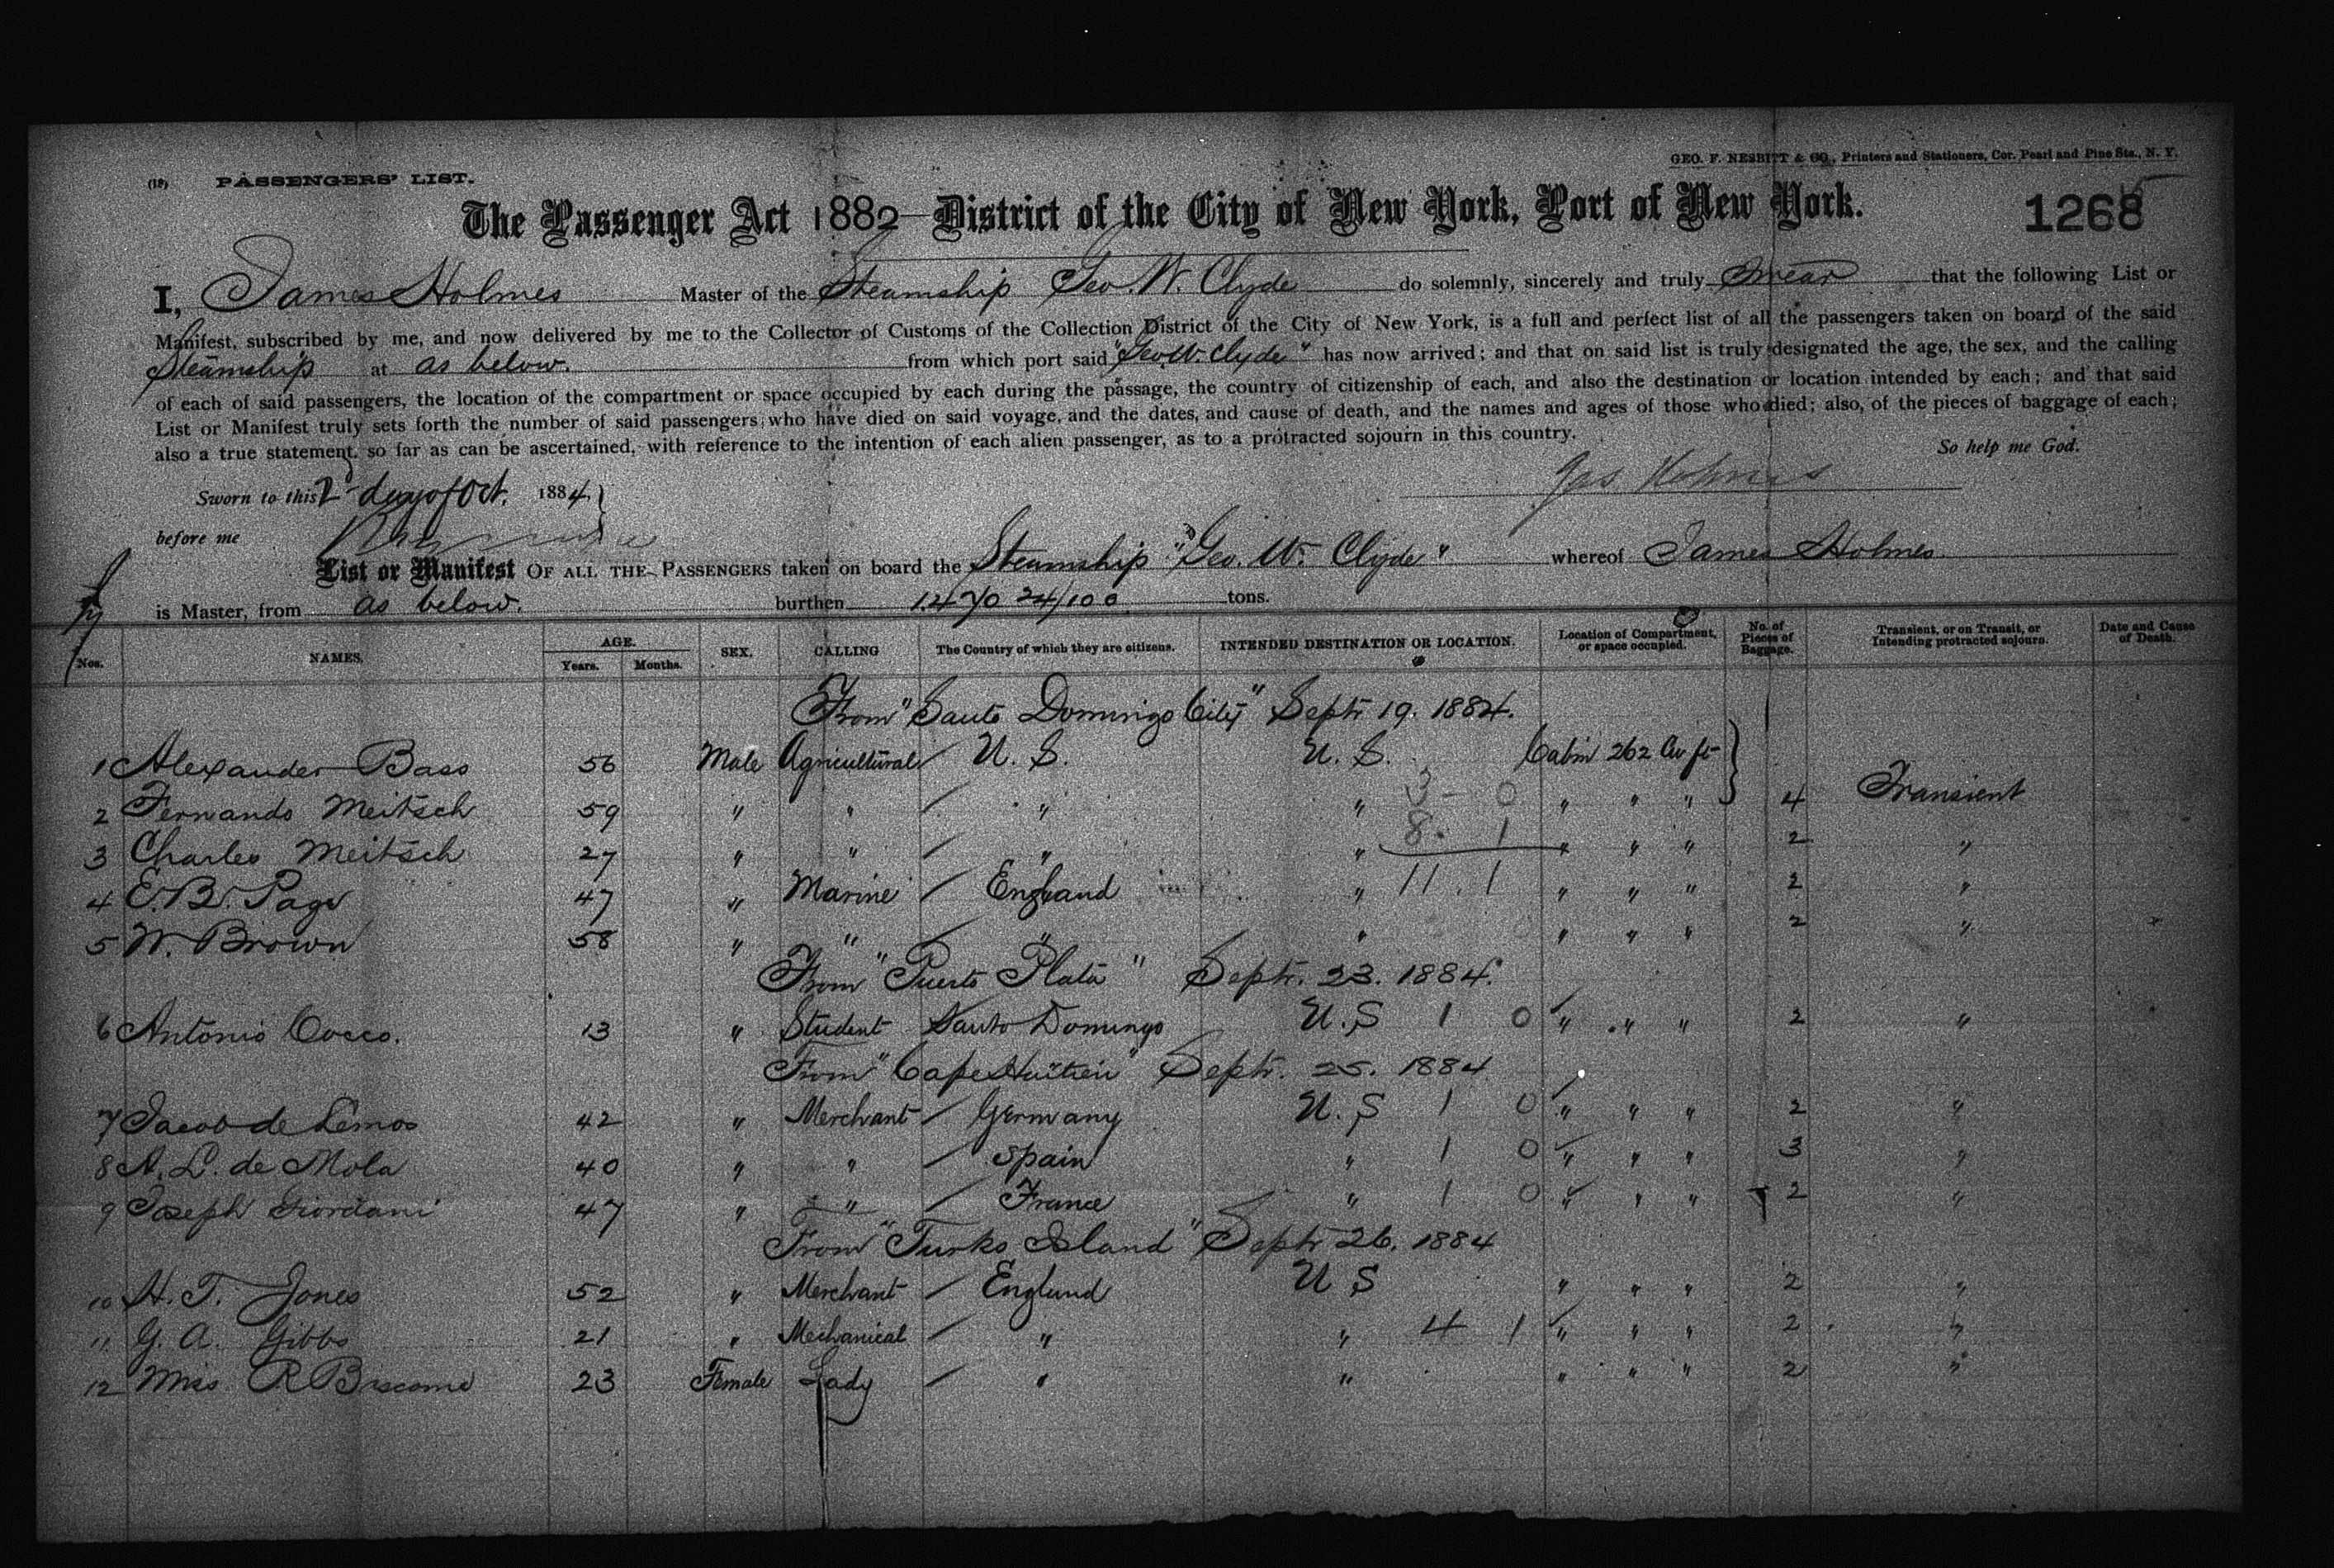 GEO. F. NESBITT & CO., Printers and Stationers, Cor. Pearl and Pine Sts., N. Y.
(18) PASSENGERS' LIST.
The Passenger Act 1882 District of the City of New York, Port of New York. 1268
I, James Holmes Master of the Steamship Geo. W. Clyde do solemnly, sincerely and truly swear that the following List or
Manifest, subscribed by me, and now delivered by me to the Collector of Customs of the Collection District of the City of New York, is a full and perfect list of all the passengers taken on board of the said
Steamship at as below. from which port said "Geo W. Clyde" has now arrived; and that on said list is truly designated the age, the sex, and the calling
of each of said passengers, the location of the compartment or space occupied by each during the passage, the country of citizenship of each, and also the destination or location intended by each; and that said
List or Manifest truly sets forth the number of said passengers who have died on said voyage, and the dates, and cause of death, and the names and ages of those who died; also, of the pieces of baggage of each;
also a true statement, so far as can be ascertained, with reference to the intention of each alien passenger, as to a protracted sojourn in this country.
So help me God.
Sworn to this 2d day of Oct. 1884, Jas. Holmes
before me
List or Manifest OF ALL THE PASSENGERS taken on board the Steamship "Geo. W. Clyde" whereof James Holmes
is Master, from as below. burthen 1470 24/100 tons.
Nos. NAMES. AGE. Years. Months. SEX. CALLING The Country of which they are citizens. INTENDED DESTINATION OR LOCATION. Location of Compartment, or space occupied. No. of Pieces of Baggage. Transient, or on Transit, or Intending protracted sojourn. Date and Cause of Death.
From "Santo Domingo City" Septr 19. 1884.
1 Alexander Bass 56 Male Agricultural / U. S. U. S. Cabin 262 Cu ft
2 Fernando Meitsch 59 " " / " " 3 - 0 " " " 4 Transient
3 Charles Meitsch 27 " " / " " 8. 1 " " " 2 "
4 E. B. Page 47 " Marine / England " 11. 1 " " " 2 "
5 W. Brown 58 " " / " " " " " 2 "
From "Puerto Plata" Septr. 23. 1884.
6 Antonio Cocco. 13 " Student Santo Domingo U. S 1 0 " " " 2 "
From "Cape Haitien" Septr. 25. 1884
7 Jacob de Lemos 42 " Merchant / Germany U. S 1 0 " " " 2 "
8 A. L. de Mola 40 " " / Spain " 1 0 " " " 3 "
9 Joseph Giordani 47 " " / France " 1 0 " " " 2 "
From "Turks Island" Septr 26. 1884
10 H. T. Jones 52 " Merchant / England U S " " " 2 "
11 G. A. Gibbs 21 " Mechanical / " " 4 1 " " " 2 "
12 Miss R Biscome 23 Female Lady / " " " " " 2 "